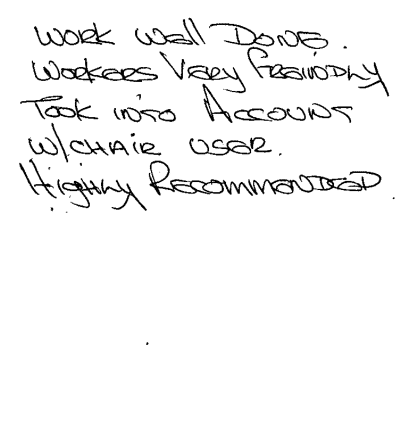 Work Well Done.
Workers Very Freindly
Took into Account
W/Chair user.
Highly Recommended.